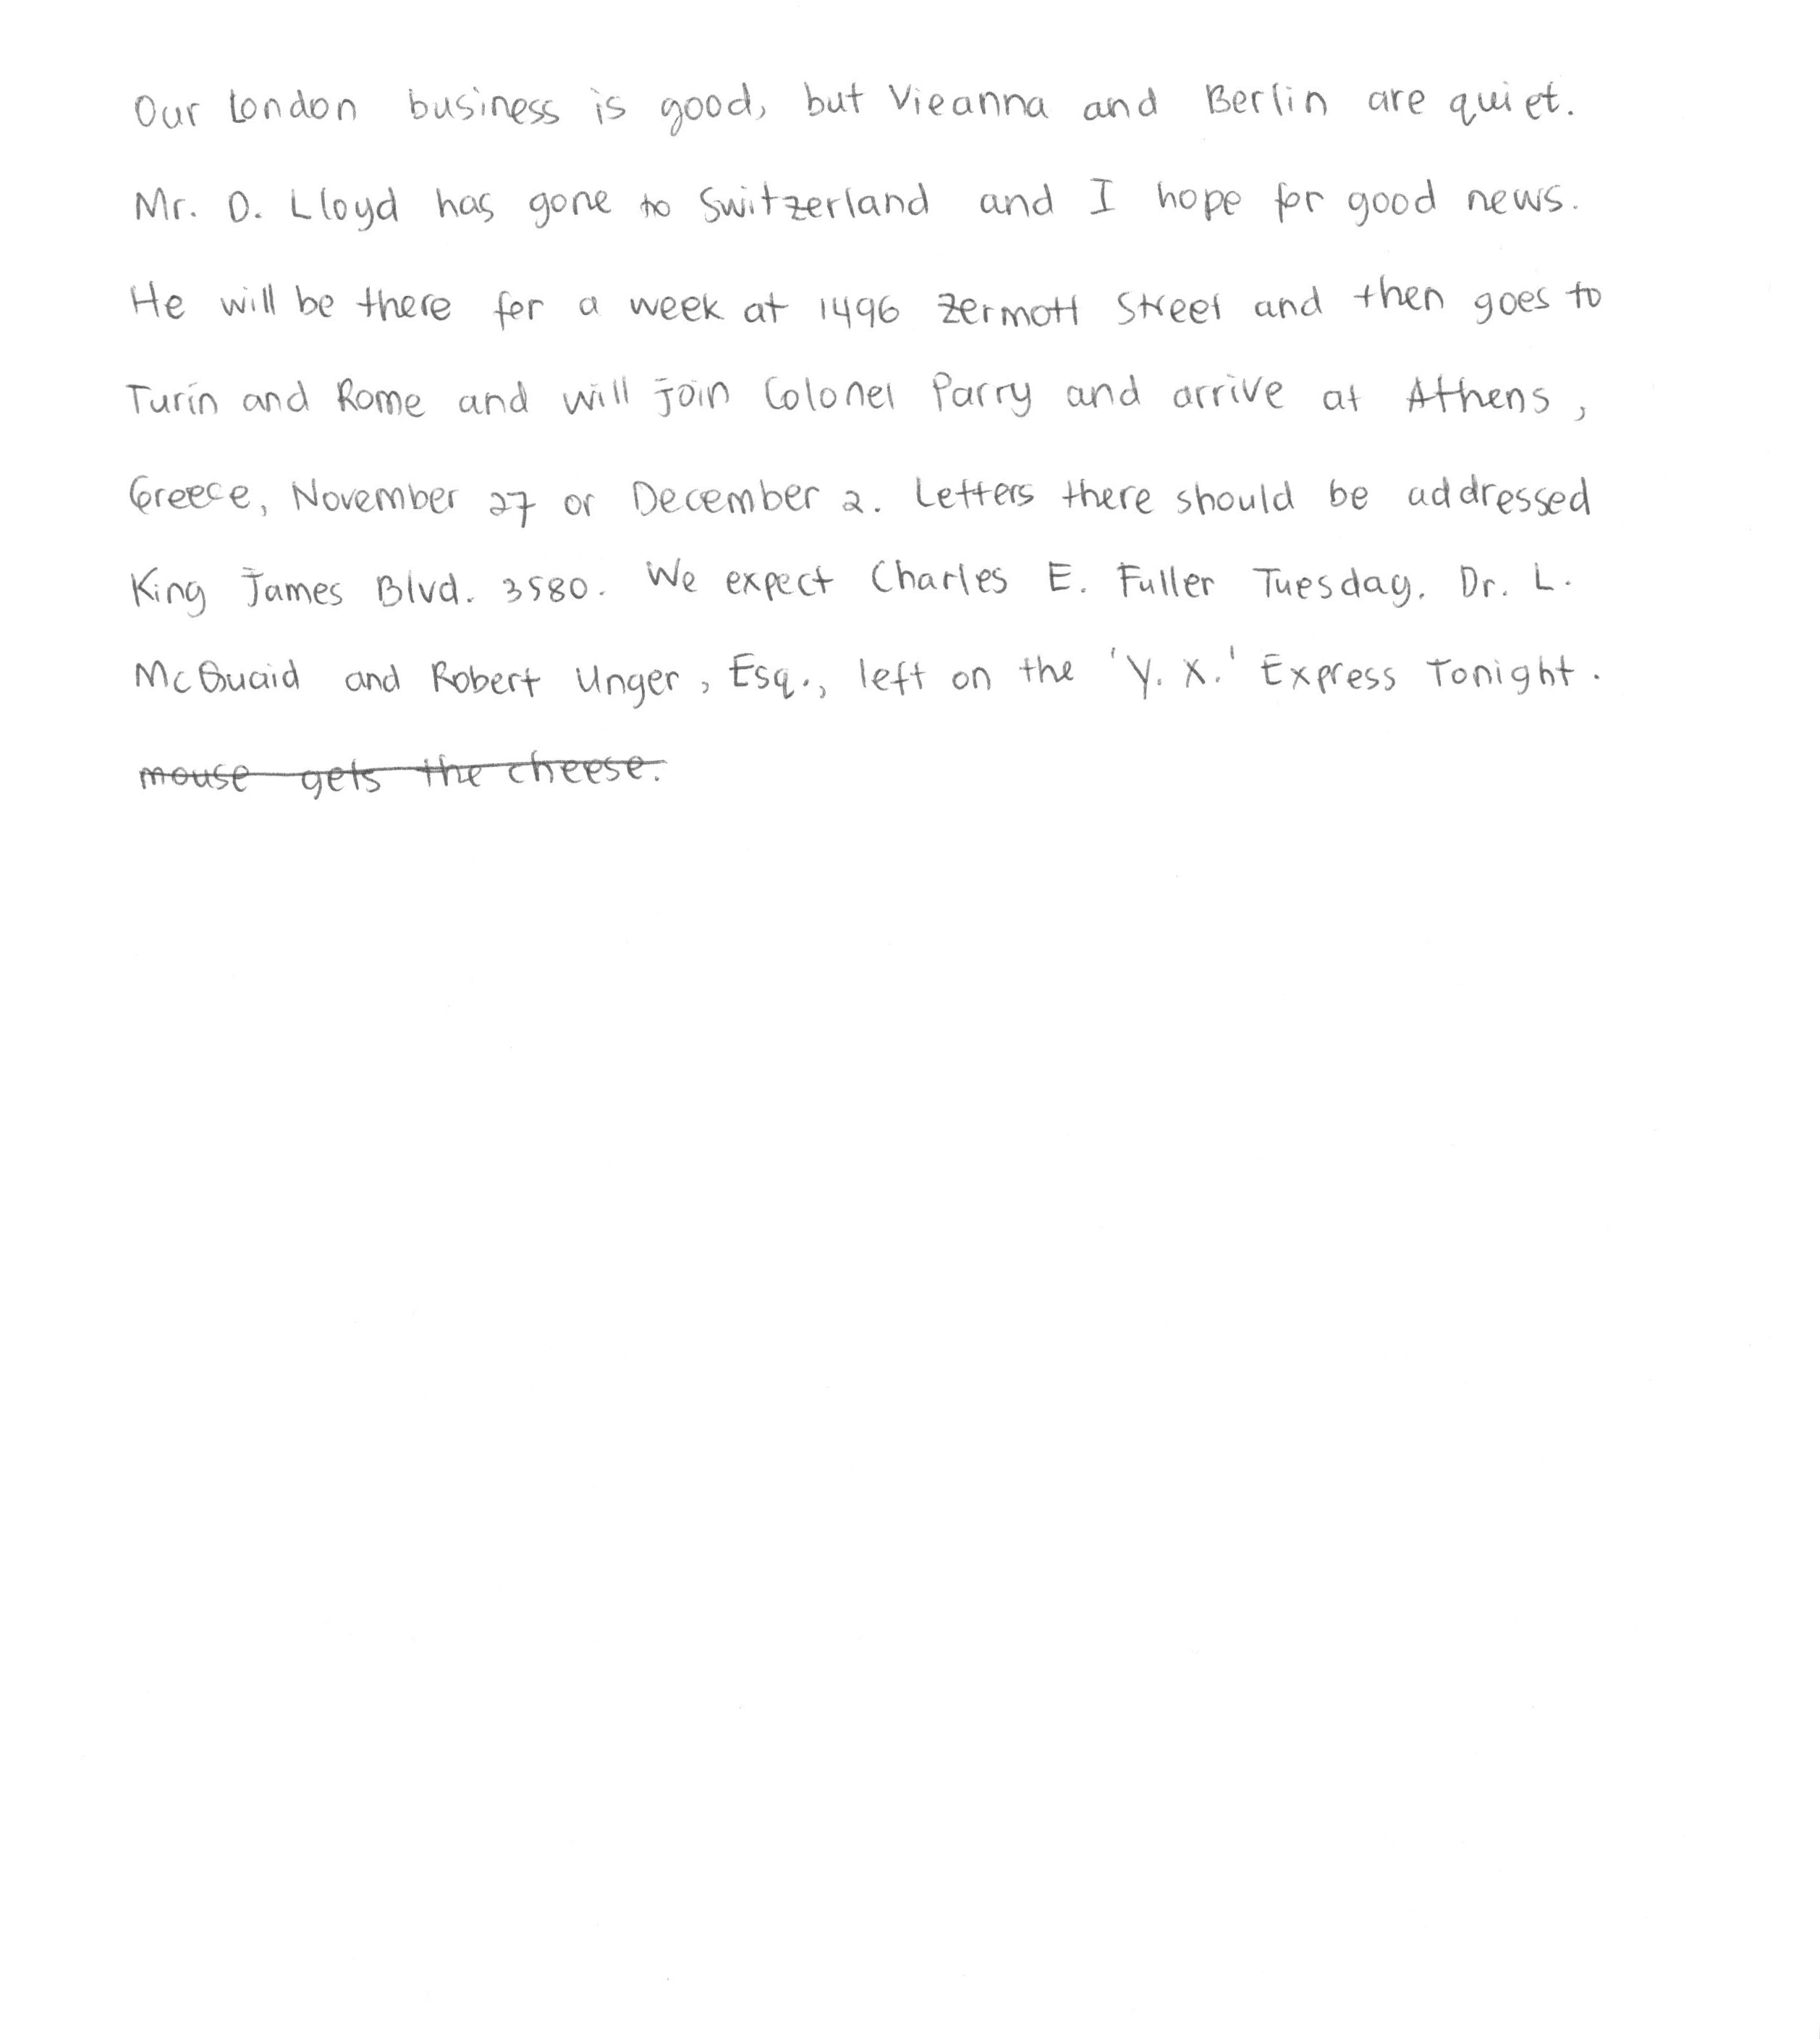 Our London business is good, but Vieanna and Berlin are quiet.
Mr. D. Lloyd has gone to Switzerland and I hope for good news.
He will be there for a week at 1496 Zermott Street and then goes to
Turin and Rome and will join Colonel Parry and arrive at Athens,
Greece, November 27 or December 2. Letters there should be addressed
King James Blvd. 3580. We expect Charles E. Fuller Tuesday. Dr. L.
McQuaid and Robert Unger, Esq., left on the 'Y. X.' Express Tonight.
mouse gets the cheese.